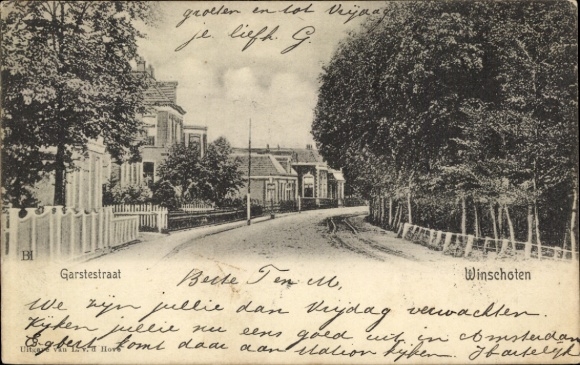 groeten en tot Vrijdag
je liefh. G.
BI
Garstestraat
Winschoten
Beste T en M,
We zijn jullie dan Vrijdag verwachten.
Kijken jullie nu eens goed uit in Amsterdam
Egbert komt daar aan station kijken. Hartelijk
Uitgave van L. v. d Hove